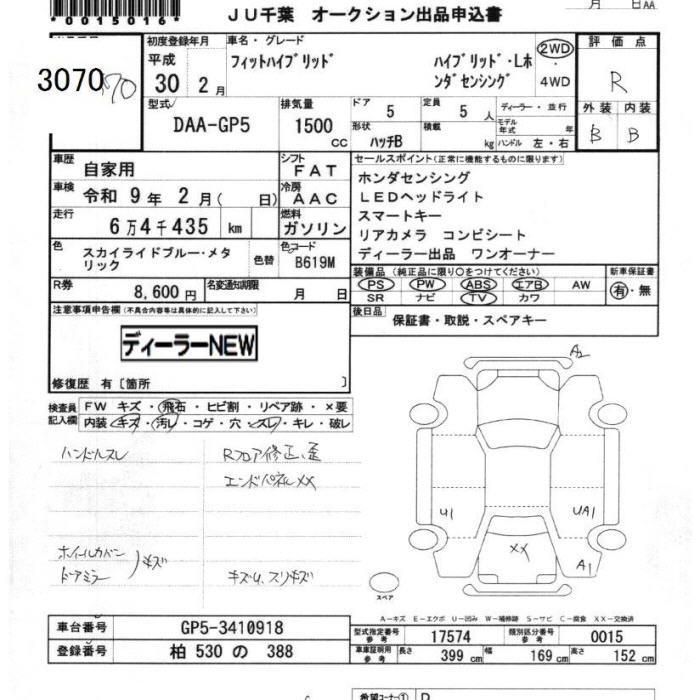 *0015016*
JU千葉 オークション出品申込書
月 日 AA
3070 70
初度登録年月 車名・グレード
平成 フィットハイブリッド ハイブリッド・Lホ 2WD
30 2月 ンダセンシング 4WD
評価点
R
型式 排気量 ドア 5 定員 5人 ディーラー・並行
DAA-GP5 1500cc 形状 ハッチB 積載 kg モデル年式 年 ハンドル 左・右
外装 内装
B B
車歴 自家用 シフト FAT
車検 令和 9年 2月( 日) 冷房 AAC
走行 6万4千435 km 燃料 ガソリン
色 スカイライドブルー・メタリック 色替 色コード B619M
R券 8,600円 名変通知期限 月 日
セールスポイント(正常に機能するものに限ります)
ホンダセンシング
LEDヘッドライト
スマートキー
リアカメラ コンビシート
ディーラー出品 ワンオーナー
装備品(純正品に限り○をつけてください) 新車保証書
PS PW ABS エアB AW 有・無
SR ナビ TV カワ
後日品 保証書・取説・スペアキー
注意事項申告欄(不具合内容等は具体的に記入して下さい)
ディーラーNEW
修復歴 有〔箇所 〕
検査員記入欄 FW キズ・飛石・ヒビ割・リペア跡・×要
内装・キズ・汚レ・コゲ・穴・スレ・キレ・破レ
ハンドルスレ Rフロア修正、歪
エンドパネルXX
ホイールカバー
ドアミラー )キズ
キズU、スリキズ
A2
U1 UA1
XX
A1
スペア
A-キズ E-エクボ U-凹み W-補修跡 S-サビ C-腐食 XX-交換済
車台番号 GP5-3410918
登録番号 柏 530 の 388
型式指定番号 参考 17574 類別区分番号 参考 0015
車庫証明用 参考 長さ 399 cm 幅 169 cm 高さ 152 cm
希望コーナー①